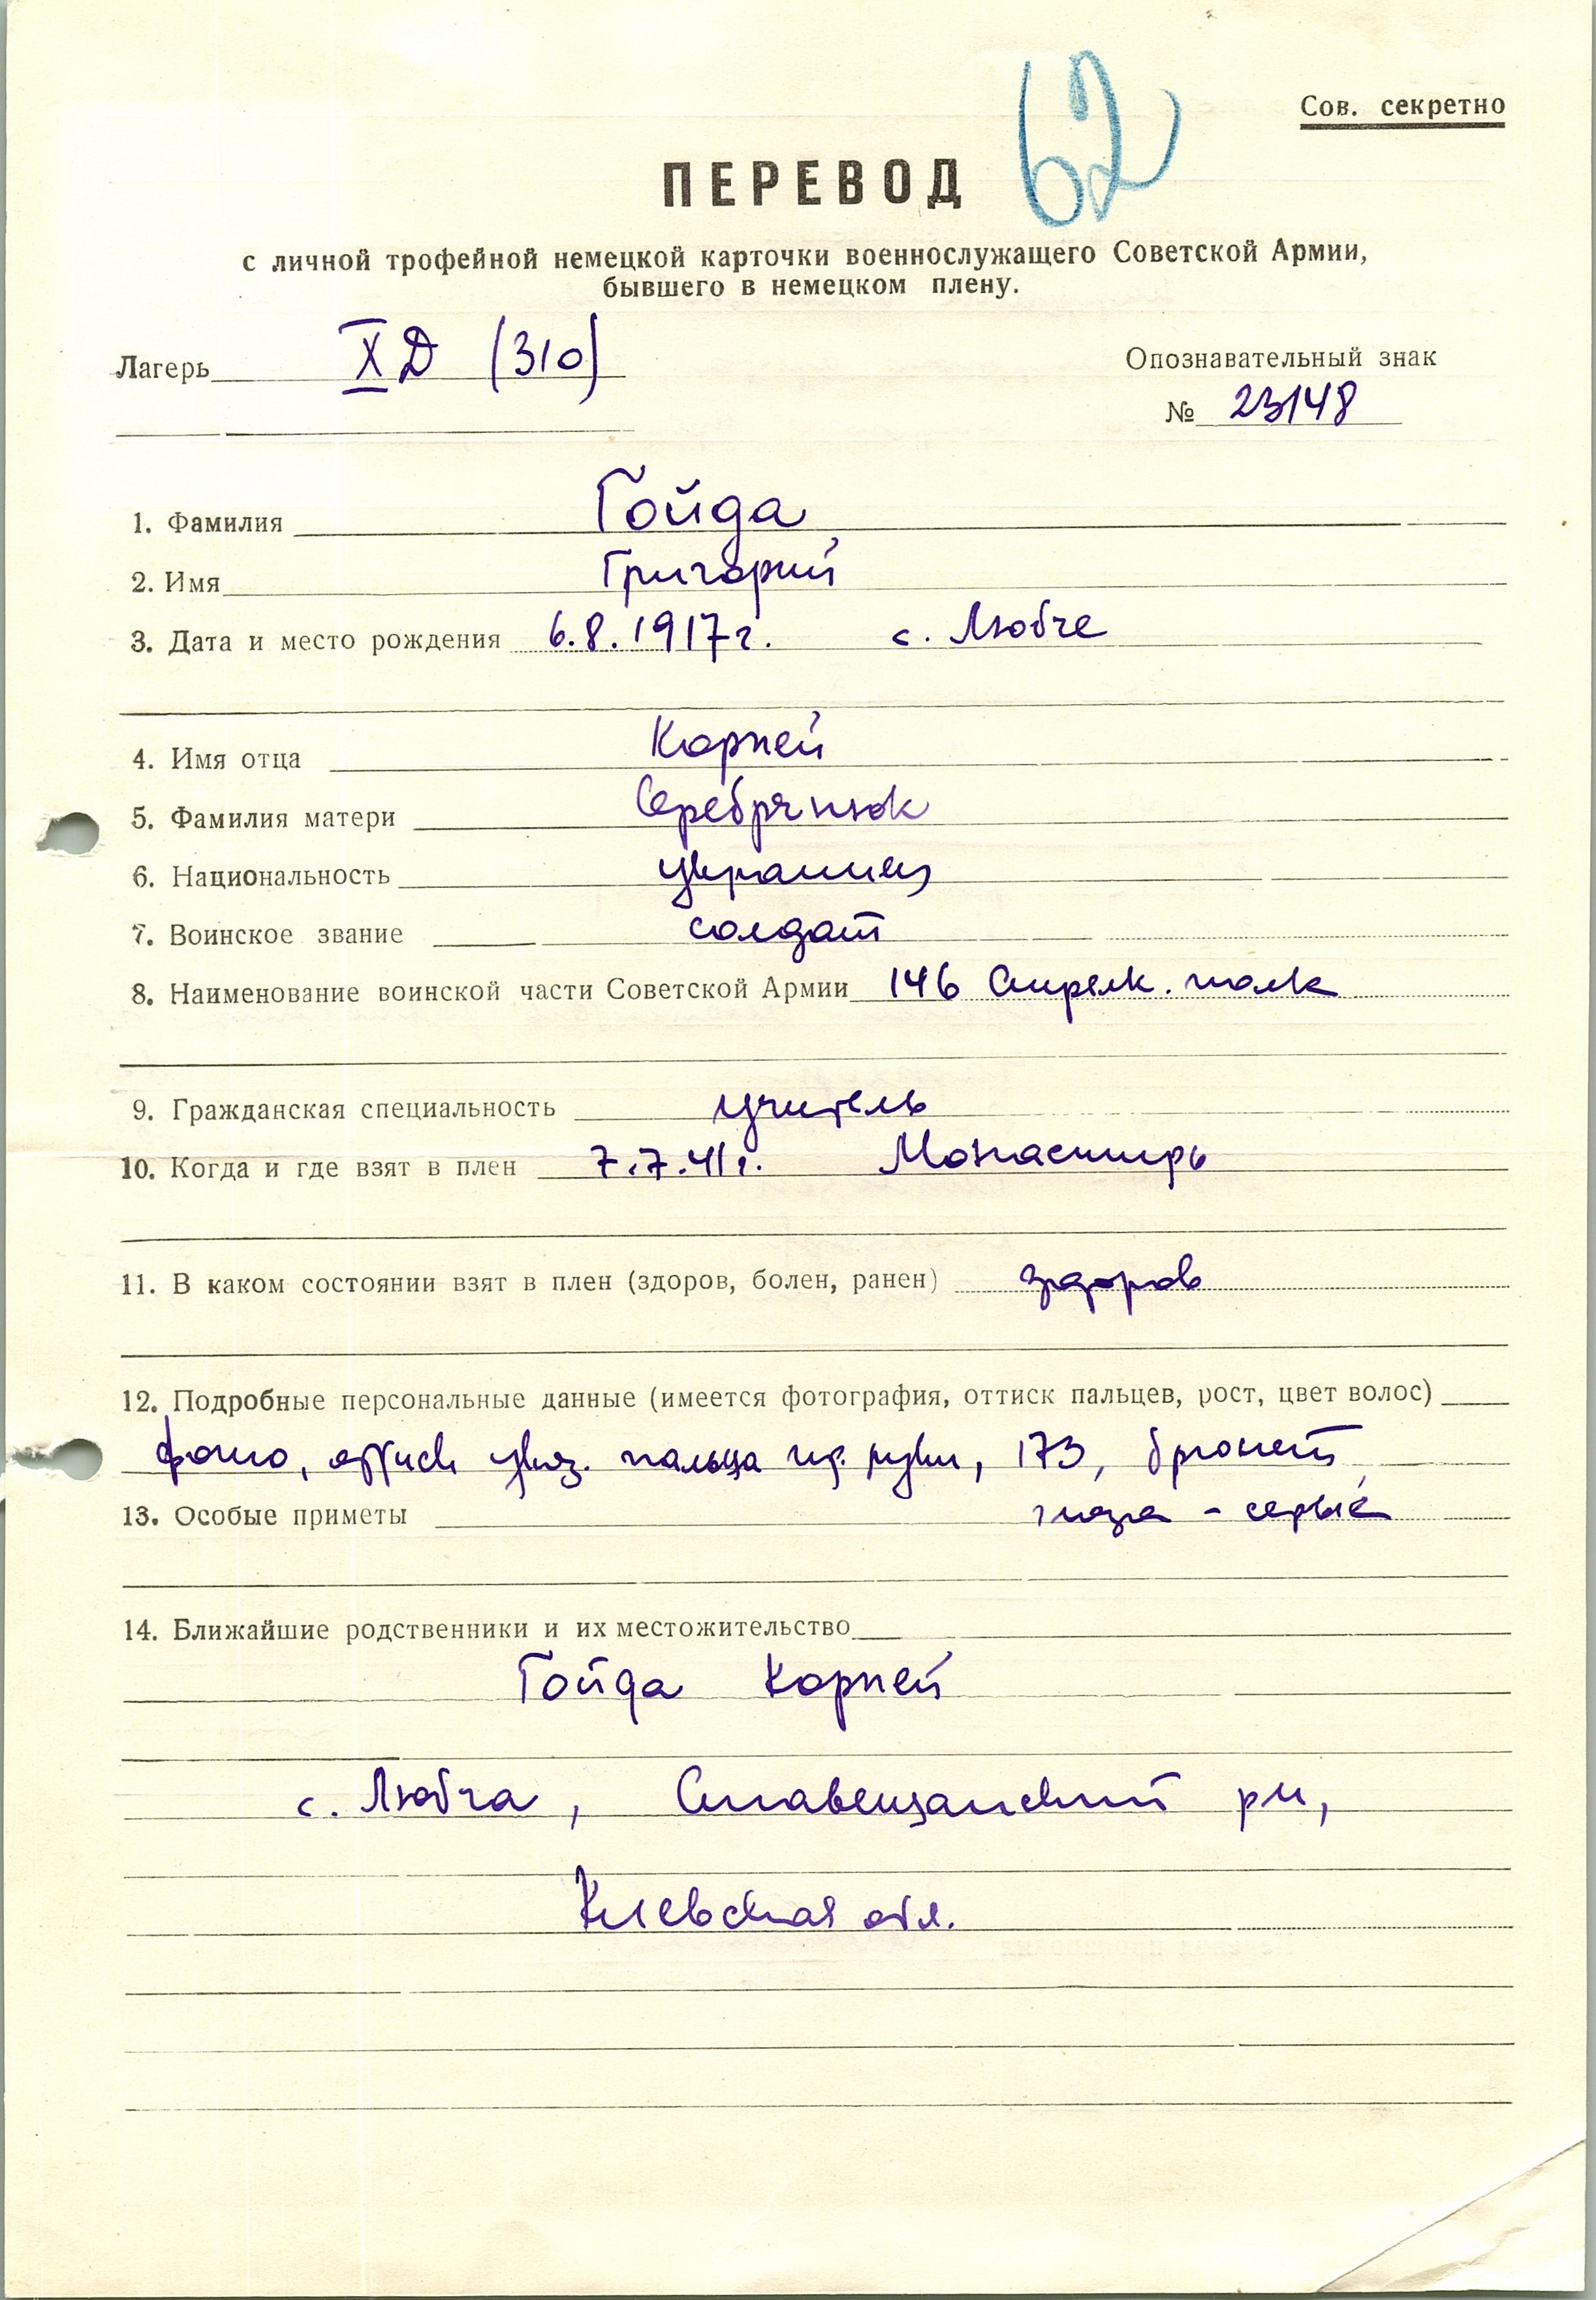 62
Сов. секретно
ПЕРЕВОД
с личной трофейной немецкой карточки военнослужащего Советской Армии,
бывшего в немецком плену.
Лагерь X Д (310)
Опознавательный знак
№ 23148
1. Фамилия Гойда
2. Имя Григорий
3. Дата и место рождения 6.8.1917г. с. Любче
4. Имя отца Корней
5. Фамилия матери Серебрянюк
6. Национальность украинец
7. Воинское звание солдат
8. Наименование воинской части Советской Армии 146 Стрелк. полк
9. Гражданская специальность учитель
10. Когда и где взят в плен 7.7.41г. Монастирь
11. В каком состоянии взят в плен (здоров, болен, ранен) здоров
12. Подробные персональные данные (имеется фотография, оттиск пальцев, рост, цвет волос)
фото, оттиск указ. пальца пр. руки, 173, брюнет
13. Особые приметы глаза - серые
14. Ближайшие родственники и их местожительство
Гойда Корней
с. Любча, Ставещанский рн,
Киевская обл.